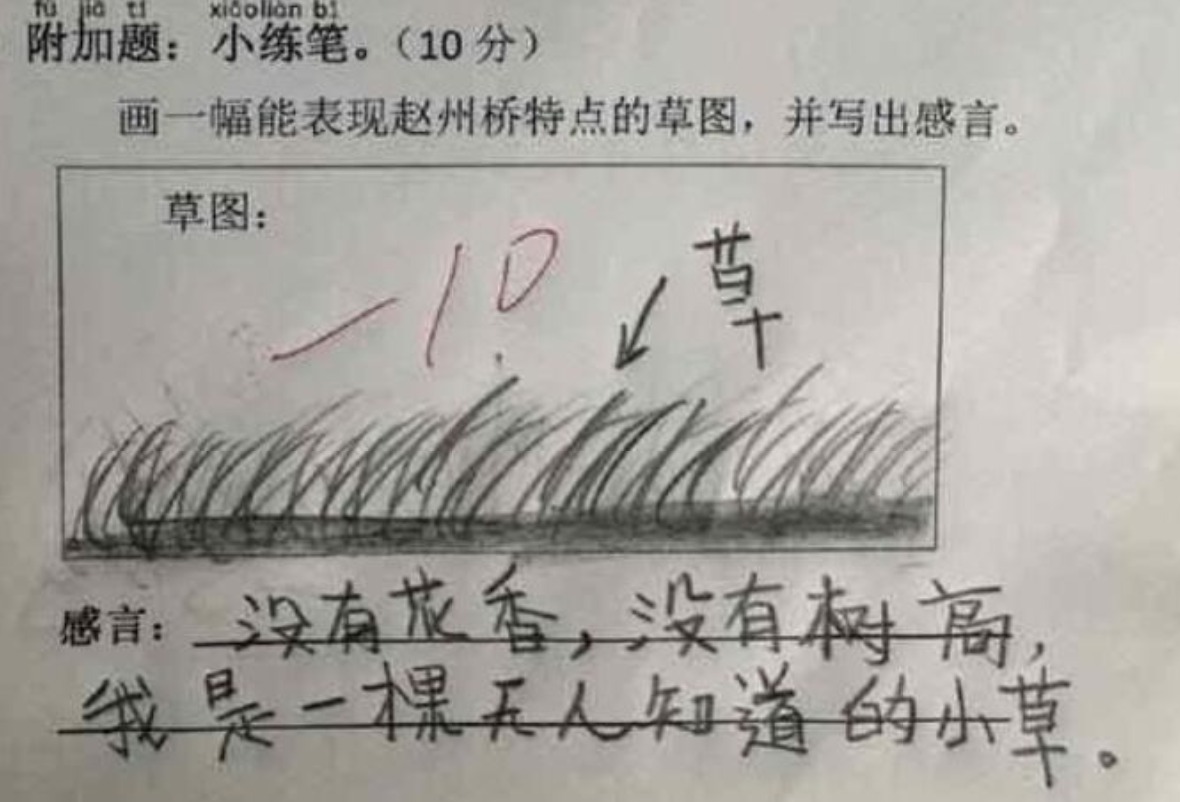 fù jiā tí xiǎoliàn bǐ
附加题：小练笔。（10 分）
画一幅能表现赵州桥特点的草图，并写出感言。
草图：
-10
草
感言：没有花香，没有树高，
我是一棵无人知道的小草。